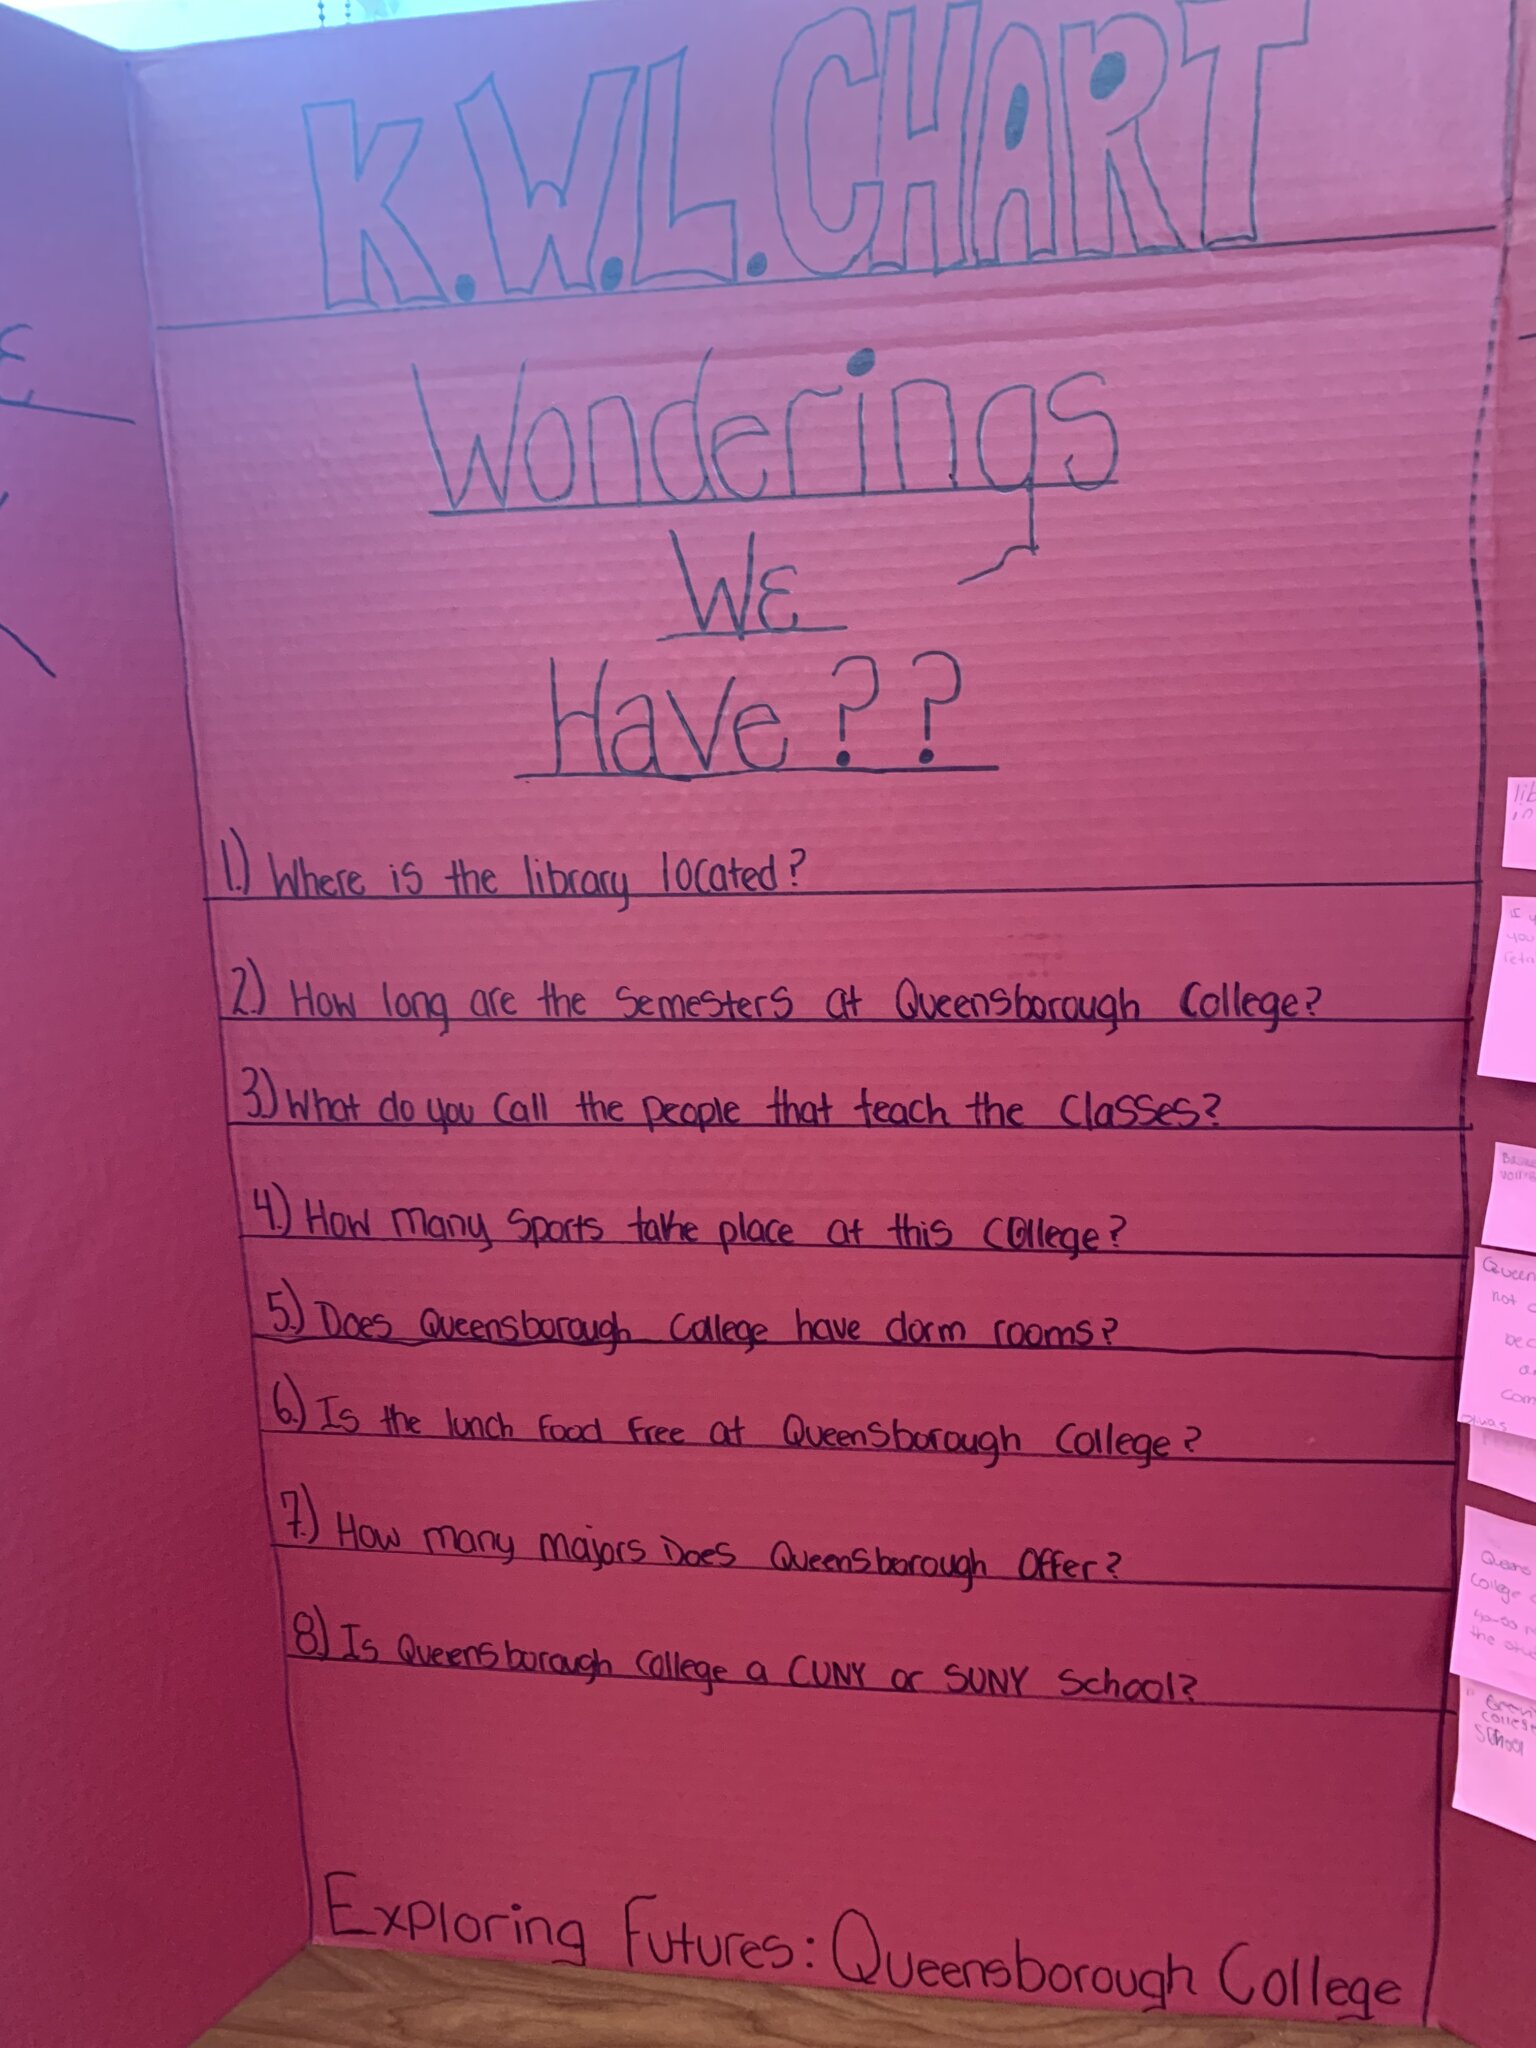 K.W.L. CHART
Wonderings
We
Have??
1.) Where is the library located?
2.) How long are the Semesters at Queensborough College?
3.) What do you Call the people that teach the Classes?
4.) How many Sports take place at this College?
5.) Does Queensborough College have dorm rooms?
6.) Is the lunch Food Free at Queensborough College?
7.) How many majors Does Queensborough Offer?
8.) Is Queensborough College a CUNY or SUNY School?
Exploring Futures: Queensborough College
not
Queens
College
the
School